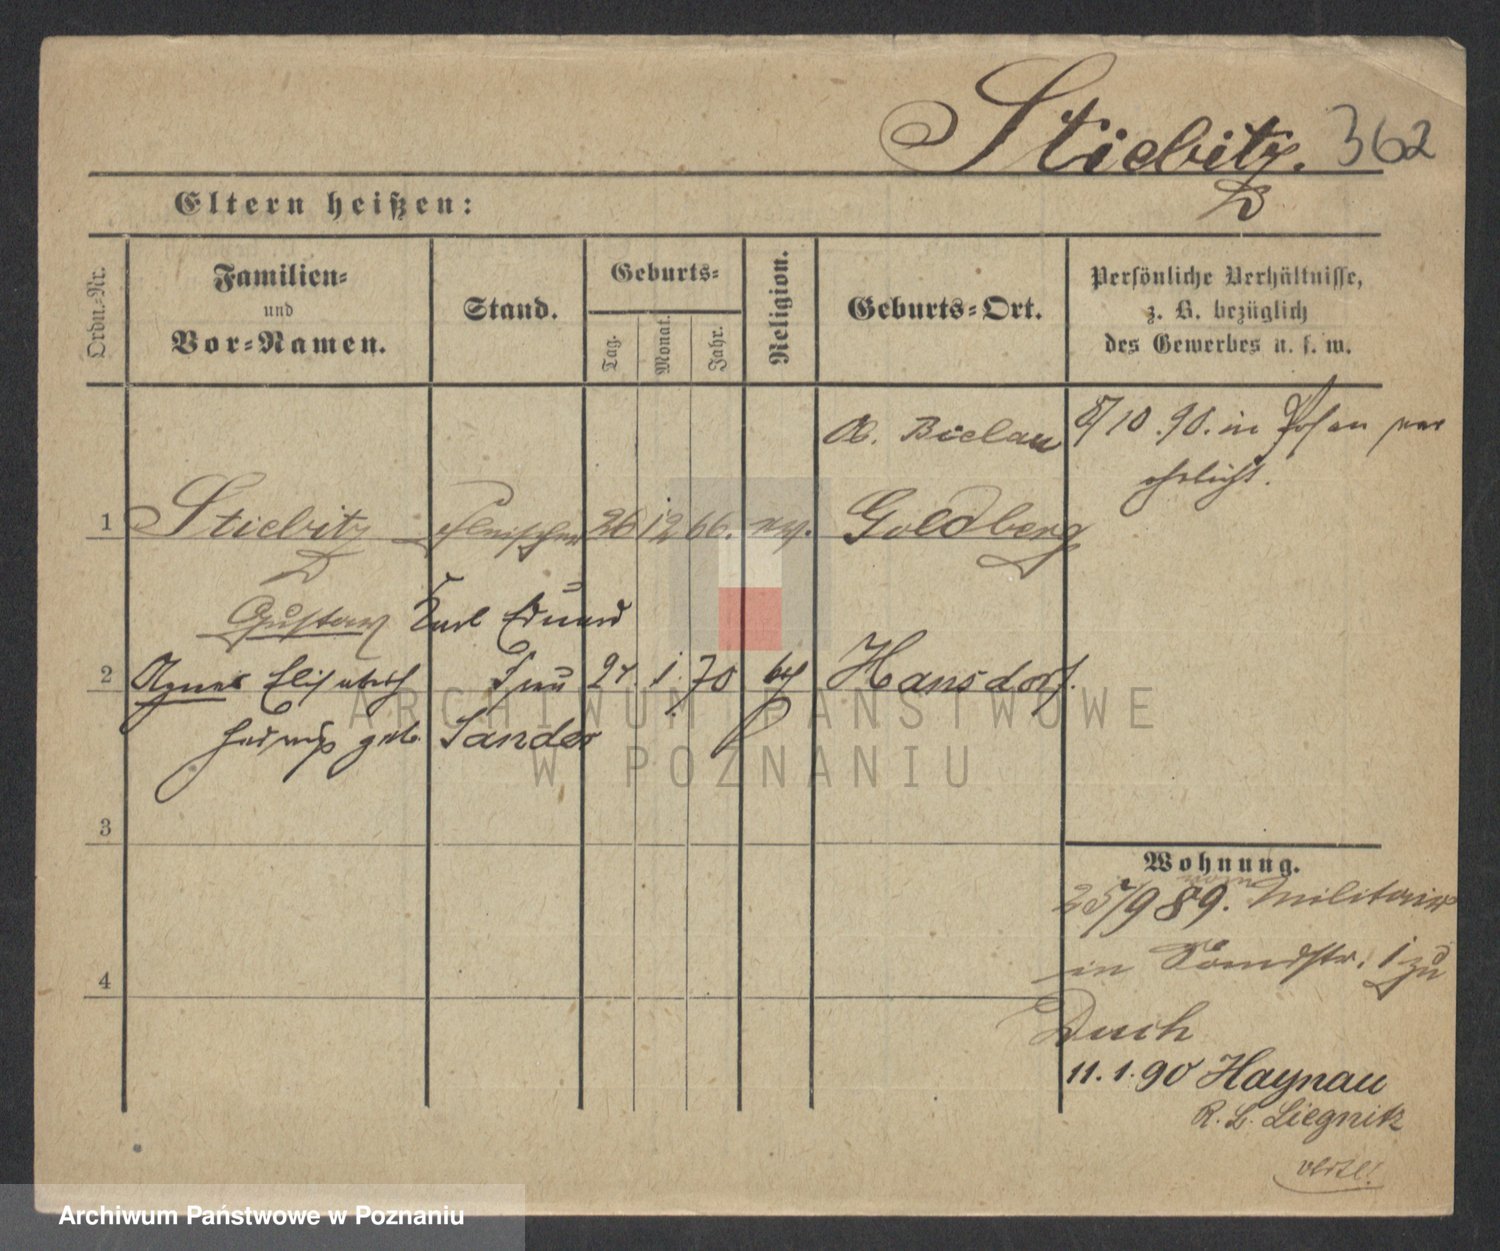 Stiebitz. 362
Eltern heißen:
Ordn.-Nr.
Familien- und Vor-Namen.
Stand.
Geburts-
Tag.
Monat.
Jahr.
Religion.
Geburts-Ort.
Persönliche Verhältnisse,
z. B. bezüglich
des Gewerbes u. s. w.
O. Bielau
8/10.90. in Posen ver
ehelicht.
1 Stiebitz Fleischer 26 12 66. ev. Goldberg
Gustav Karl Eduard
2 Agnes Elisabeth Frau 1. 70 Hansdorf.
Hedwig geb. Sander
3
4
Wohnung.
25/9 89. Militair
in 1 zu
11.1.90 Haynau
R. B. Liegnitz
ARCHIWUM PAŃSTWOWE
W POZNANIU
Archiwum Państwowe w Poznaniu